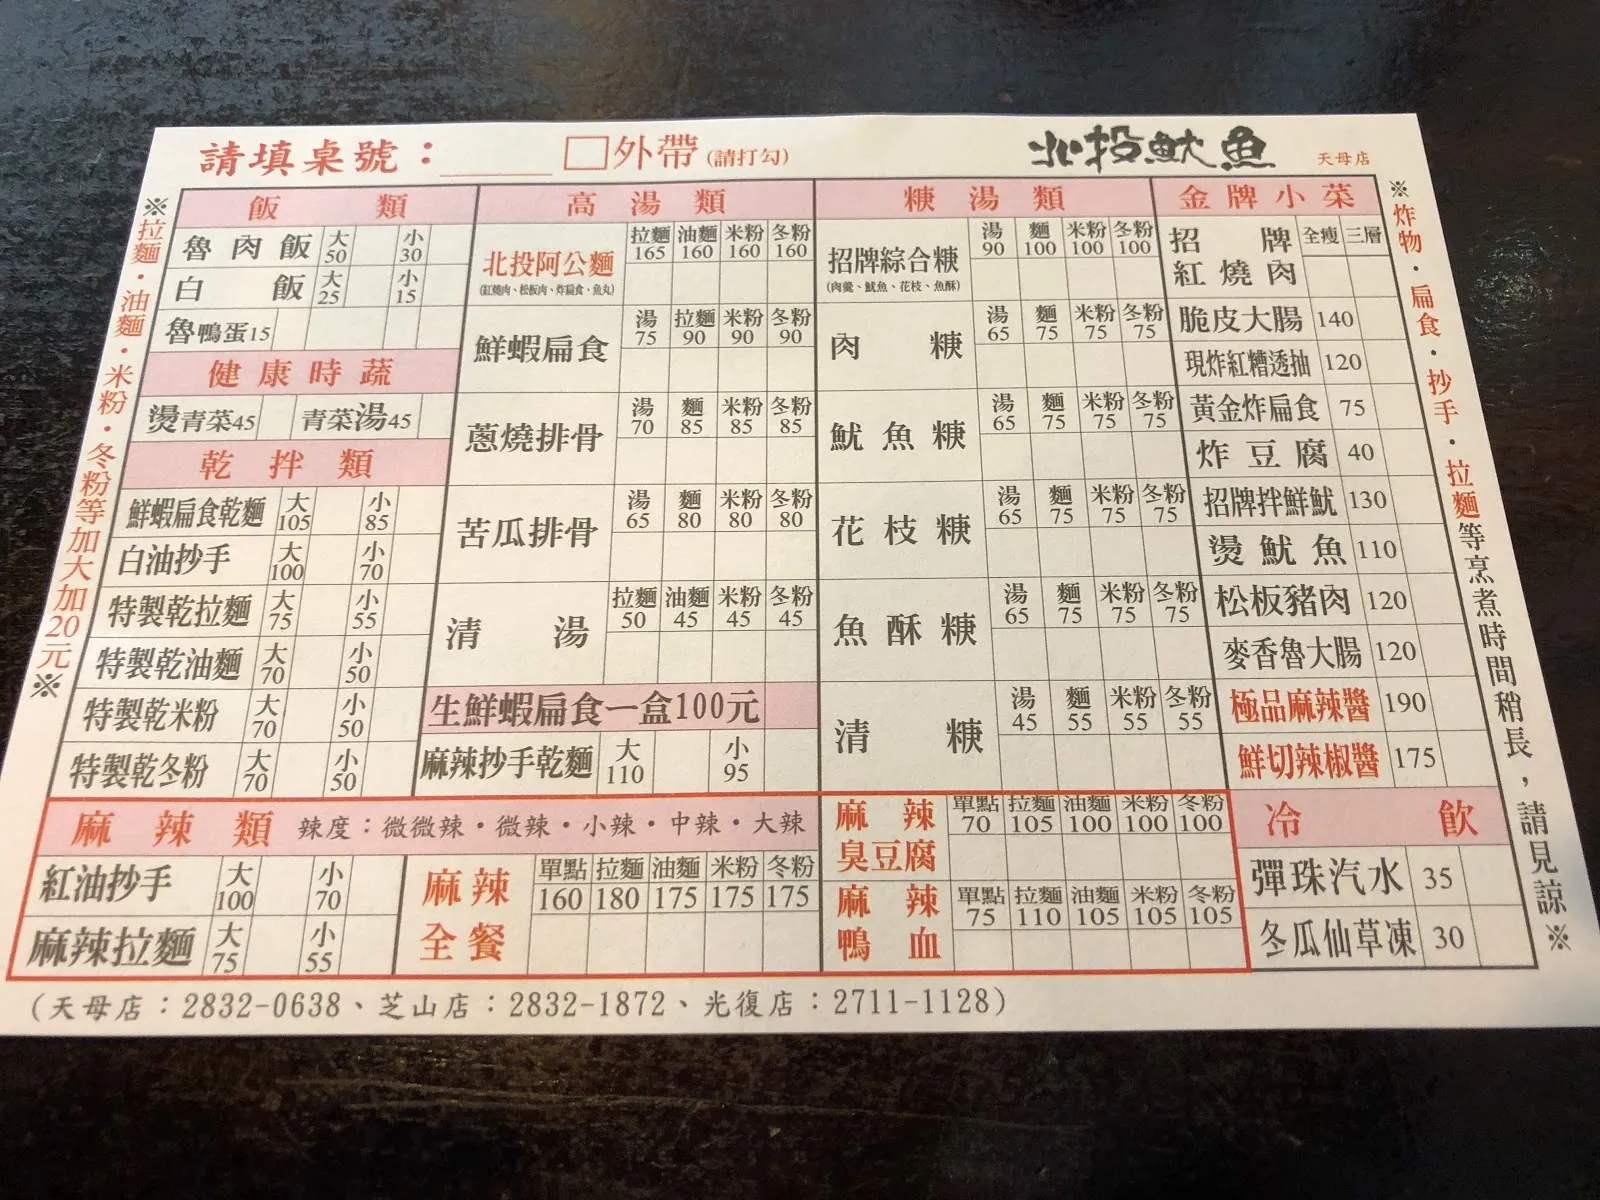 請填桌號：
□外帶(請打勾)
北投魷魚
天母店
※拉麵・油麵・米粉・冬粉等加大加20元※
飯類
魯肉飯 大50 小30
白飯 大25 小15
魯鴨蛋15
健康時蔬
燙青菜45 青菜湯45
乾拌類
鮮蝦扁食乾麵 大105 小85
白油抄手 大100 小70
特製乾拉麵 大75 小55
特製乾油麵 大70 小50
特製乾米粉 大70 小50
特製乾冬粉 大70 小50
高湯類
北投阿公麵 拉麵165 油麵160 米粉160 冬粉160
(紅燒肉、松板肉、炸扁食、魚丸)
鮮蝦扁食 湯75 拉麵90 米粉90 冬粉90
蔥燒排骨 湯70 麵85 米粉85 冬粉85
苦瓜排骨 湯65 麵80 米粉80 冬粉80
清湯 拉麵50 油麵45 米粉45 冬粉45
生鮮蝦扁食一盒100元
麻辣抄手乾麵 大110 小95
焿湯類
招牌綜合焿 湯90 麵100 米粉100 冬粉100
(肉羹、魷魚、花枝、魚酥)
肉焿 湯65 麵75 米粉75 冬粉75
魷魚焿 湯65 麵75 米粉75 冬粉75
花枝焿 湯65 麵75 米粉75 冬粉75
魚酥焿 湯65 麵75 米粉75 冬粉75
清焿 湯45 麵55 米粉55 冬粉55
金牌小菜
招牌紅燒肉 全瘦 三層
脆皮大腸 140
現炸紅糟透抽 120
黃金炸扁食 75
炸豆腐 40
招牌拌鮮魷 130
燙魷魚 110
松板豬肉 120
麥香魯大腸 120
極品麻辣醬 190
鮮切辣椒醬 175
冷飲
彈珠汽水 35
冬瓜仙草凍 30
麻辣類 辣度：微微辣・微辣・小辣・中辣・大辣
紅油抄手 大100 小70
麻辣拉麵 大75 小55
麻辣全餐 單點160 拉麵180 油麵175 米粉175 冬粉175
麻辣臭豆腐 單點70 拉麵105 油麵100 米粉100 冬粉100
麻辣鴨血 單點75 拉麵110 油麵105 米粉105 冬粉105
※炸物・扁食・抄手・拉麵等烹煮時間稍長，請見諒※
(天母店：2832-0638、芝山店：2832-1872、光復店：2711-1128)